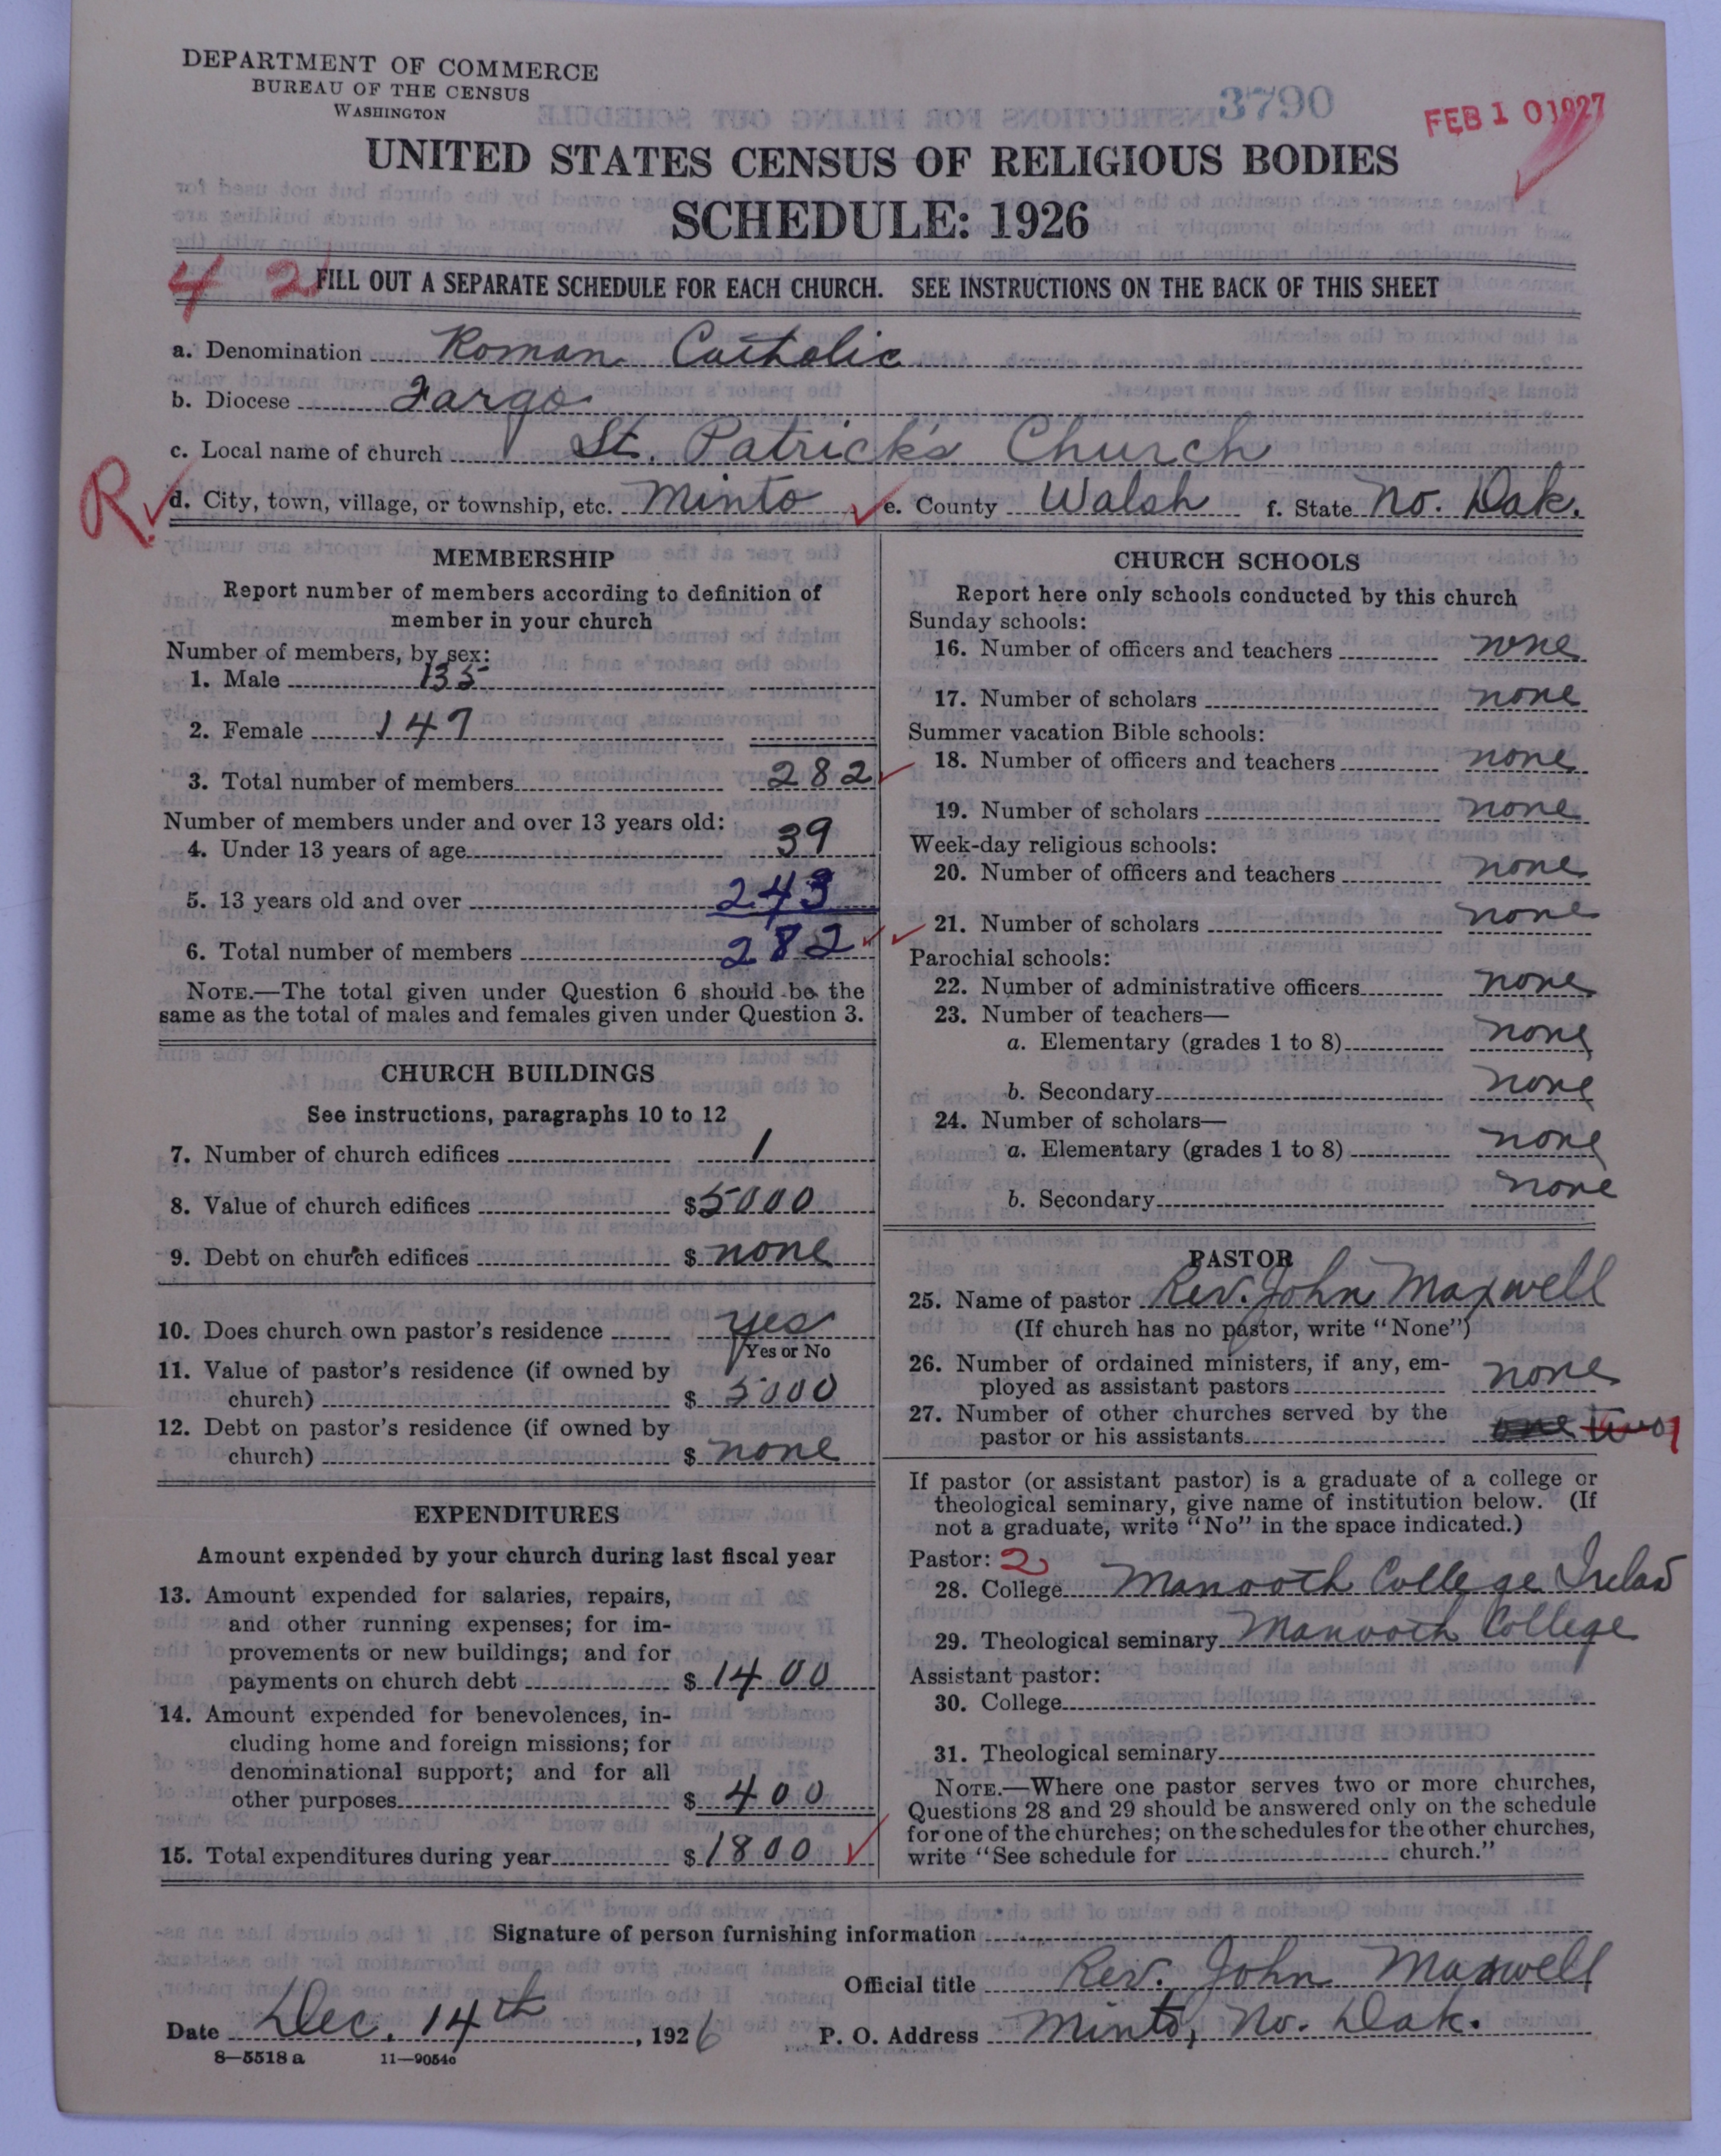 DEPARTMENT OF COMMERCE
BUREAU OF THE CENSUS
WASHINGTON
3790
FEB 10 1927
UNITED STATES CENSUS OF RELIGIOUS BODIES
SCHEDULE: 1926
4 2
FILL OUT A SEPARATE SCHEDULE FOR EACH CHURCH. SEE INSTRUCTIONS ON THE BACK OF THIS SHEET
a. Denomination Roman Catholic
b. Diocese Fargo
c. Local name of church St. Patrick's Church
R. d. City, town, village, or township, etc. Minto e. County Walsh f. State No. Dak.
MEMBERSHIP
Report number of members according to definition of
member in your church
Number of members, by sex:
1. Male 135
2. Female 147
3. Total number of members 282
Number of members under and over 13 years old:
4. Under 13 years of age 39
5. 13 years old and over 243
6. Total number of members 282
NOTE.—The total given under Question 6 should be the
same as the total of males and females given under Question 3.
CHURCH BUILDINGS
See instructions, paragraphs 10 to 12
7. Number of church edifices 1
8. Value of church edifices $5000
9. Debt on church edifices $ none
10. Does church own pastor's residence yes
Yes or No
11. Value of pastor's residence (if owned by
church) $ 5000
12. Debt on pastor's residence (if owned by
church) $ none
EXPENDITURES
Amount expended by your church during last fiscal year
13. Amount expended for salaries, repairs,
and other running expenses; for im-
provements or new buildings; and for
payments on church debt $ 1400
14. Amount expended for benevolences, in-
cluding home and foreign missions; for
denominational support; and for all
other purposes $ 400
15. Total expenditures during year $ 1800
CHURCH SCHOOLS
Report here only schools conducted by this church
Sunday schools:
16. Number of officers and teachers none
17. Number of scholars none
Summer vacation Bible schools:
18. Number of officers and teachers none
19. Number of scholars none
Week-day religious schools:
20. Number of officers and teachers none
21. Number of scholars none
Parochial schools:
22. Number of administrative officers none
23. Number of teachers—
a. Elementary (grades 1 to 8) none
b. Secondary none
24. Number of scholars—
a. Elementary (grades 1 to 8) none
b. Secondary none
PASTOR
25. Name of pastor Rev. John Maxwell
(If church has no pastor, write "None")
26. Number of ordained ministers, if any, em-
ployed as assistant pastors none
27. Number of other churches served by the
pastor or his assistants one two 1
If pastor (or assistant pastor) is a graduate of a college or
theological seminary, give name of institution below. (If
not a graduate, write "No" in the space indicated.)
Pastor: 2
28. College Manooth College Irelad
29. Theological seminary Manooth College
Assistant pastor:
30. College
31. Theological seminary
NOTE.—Where one pastor serves two or more churches,
Questions 28 and 29 should be answered only on the schedule
for one of the churches; on the schedules for the other churches,
write "See schedule for church."
Signature of person furnishing information
Official title Rev. John Maxwell
Date Dec. 14th, 1926 P. O. Address Minto, No. Dak.
8—5518 a 11—9054c